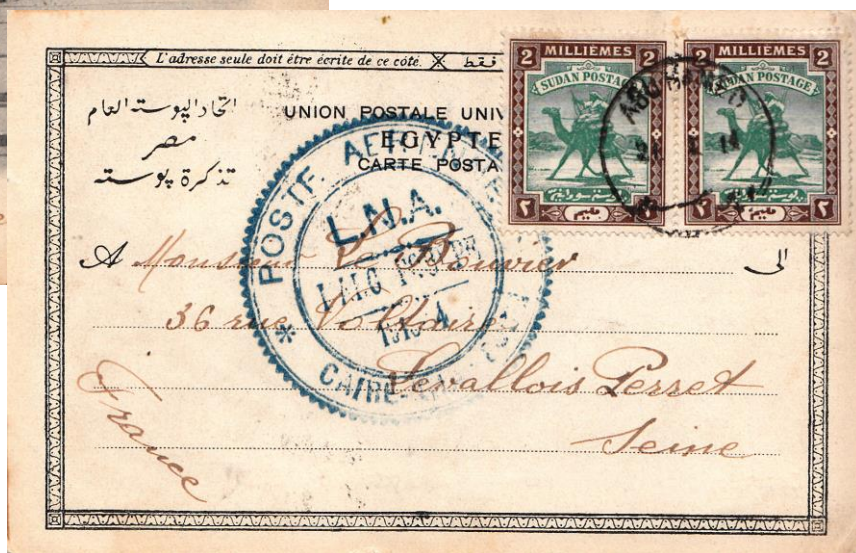 L'adresse seule doit être écrite de ce côté.
فقط
اتحاد البوسته العام
مصر
تذكرة بوسته
UNION POSTALE UNIV
EGYPTE
CARTE POSTA
2 MILLIÈMES
SUDAN POSTAGE
٢ مليم ٢
2 MILLIÈMES
SUDAN POSTAGE
٢ مليم ٢
ABU HAMED
14
* POSTE
L.N.A.
1914
CAIRO
A Monsieur Le Bouvier
الى
36 rue Voltaire
Levallois Perret
Seine
France